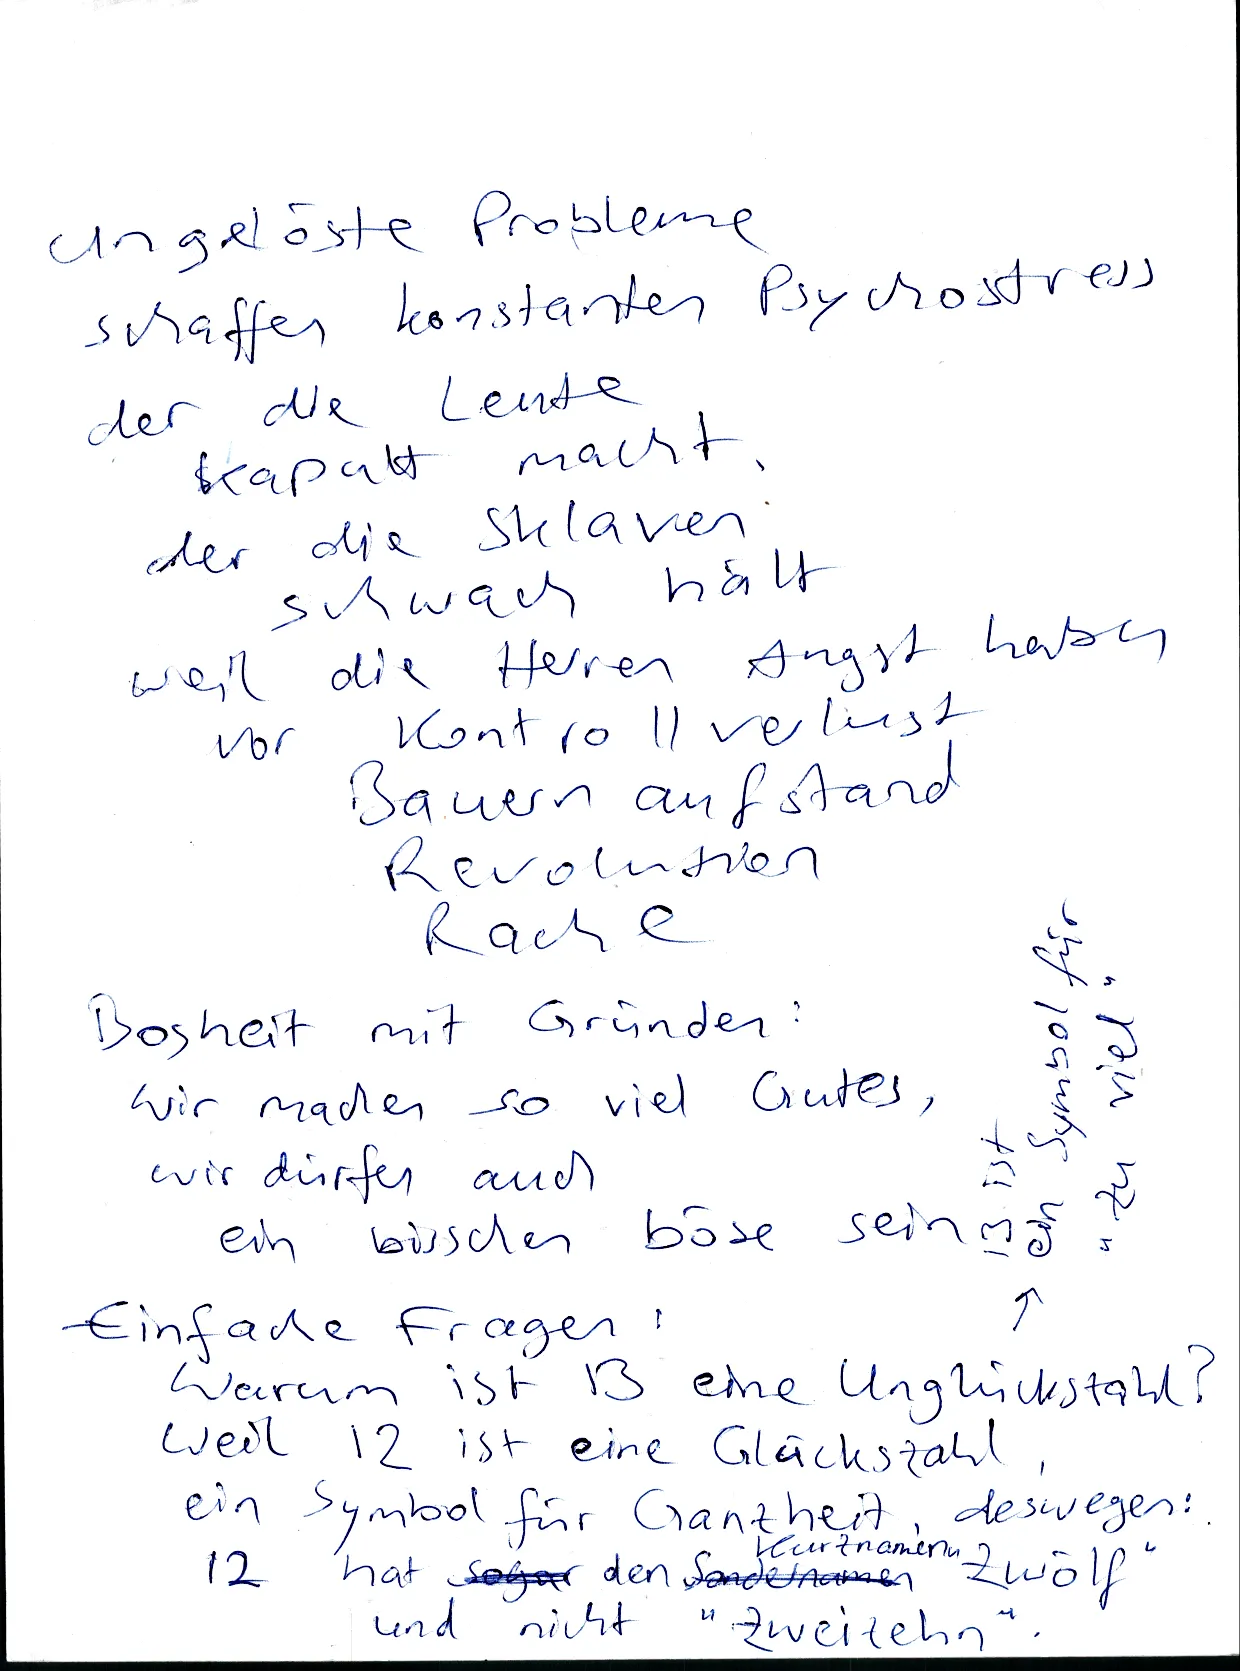 ungelöste Probleme
schaffen konstanten Psychostress
der die Leute
kaputt macht.
der die Sklaven
schwach hält
weil die Herren Angst haben
vor Kontrollverlust
Bauernaufstand
Revolution
Rache
Bosheit mit Gründen:
wir machen so viel Gutes,
wir dürfen auch
ein bisschen böse sein
Einfache Fragen:
Warum ist 13 eine Unglückstahl?
Weil 12 ist eine Glückszahl,
ein Symbol für Ganzheit, deswegen:
12 hat sogar den Sondernamen Kurznamen "Zwölf"
und nicht "Zweizehn".
↑
13 ist
ein Symbol für
"zu viel"